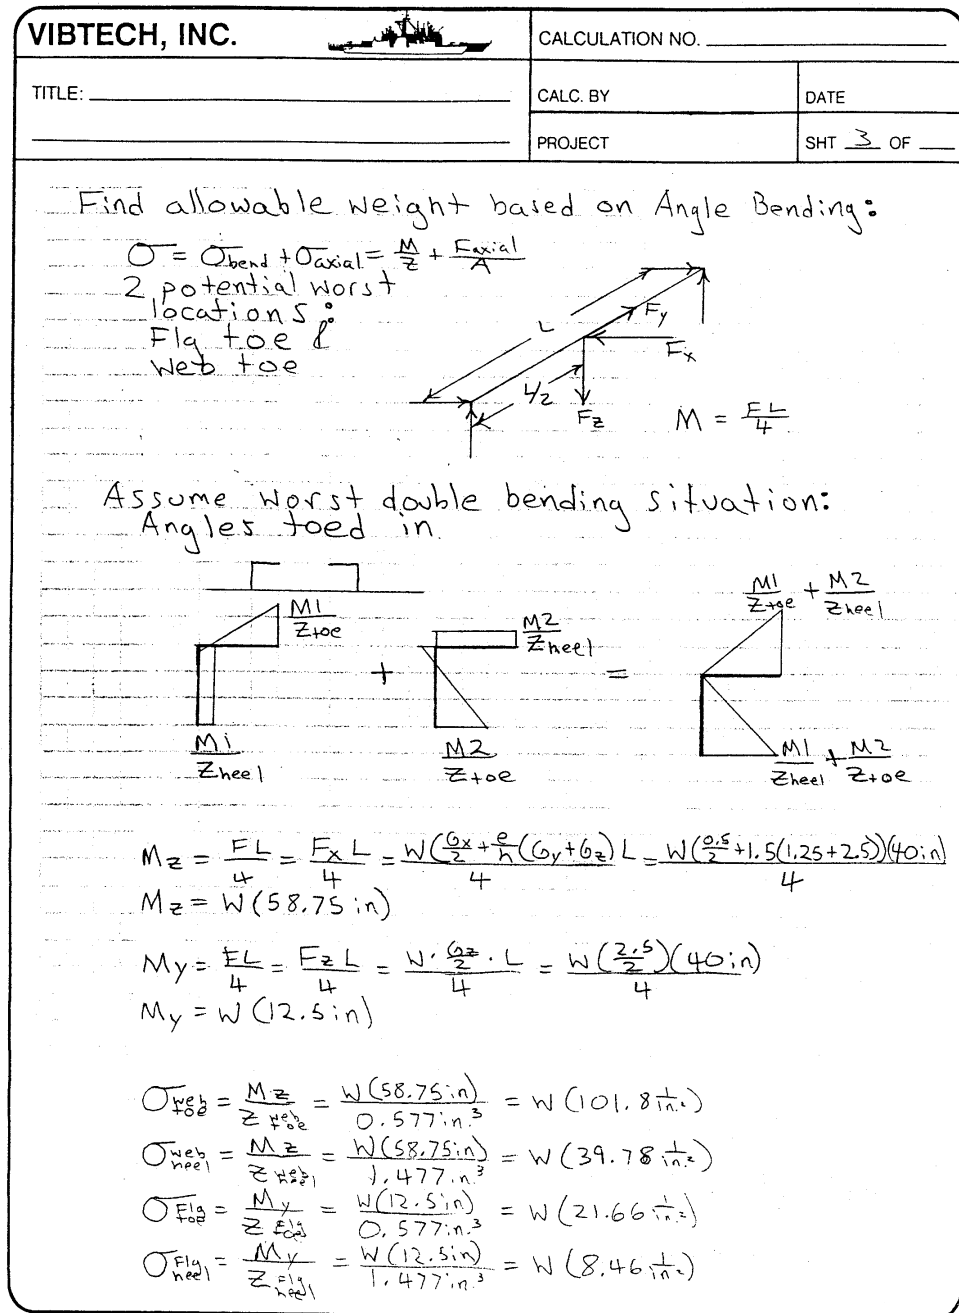 VIBTECH, INC.
CALCULATION NO.
TITLE:
CALC. BY
DATE
PROJECT
SHT 3 OF
Find allowable weight based on Angle Bending:
σ = σbend + σaxial = M/Z + Faxial/A
2 potential worst
locations:
Flg toe &
Web toe
L
Fy
Fx
L/2
Fz
M = FL/4
Assume worst double bending situation:
Angles toed in
M1/Ztoe
M1/Zheel
+
M2/Zheel
M2/Ztoe
=
M1/Ztoe + M2/Zheel
M1/Zheel + M2/Ztoe
Mz = FL/4 = FxL/4 = W(Gx/2 + e/h(Gy+Gz)L/4 = W(0.5/2+1.5(1.25+2.5))(40in)/4
Mz = W(58.75in)
My = FL/4 = FzL/4 = W·Gz/2·L/4 = W(2.5/2)(40in)/4
My = W(12.5in)
σweb toe = Mz/Z web toe = W(58.75in)/0.577in³ = W(101.8 1/in²)
σweb heel = Mz/Z web heel = W(58.75in)/1.477in³ = W(39.78 1/in²)
σFlg toe = My/Z Flg toe = W(12.5in)/0.577in³ = W(21.66 1/in²)
σFlg heel = My/Z Flg heel = W(12.5in)/1.477in³ = W(8.46 1/in²)